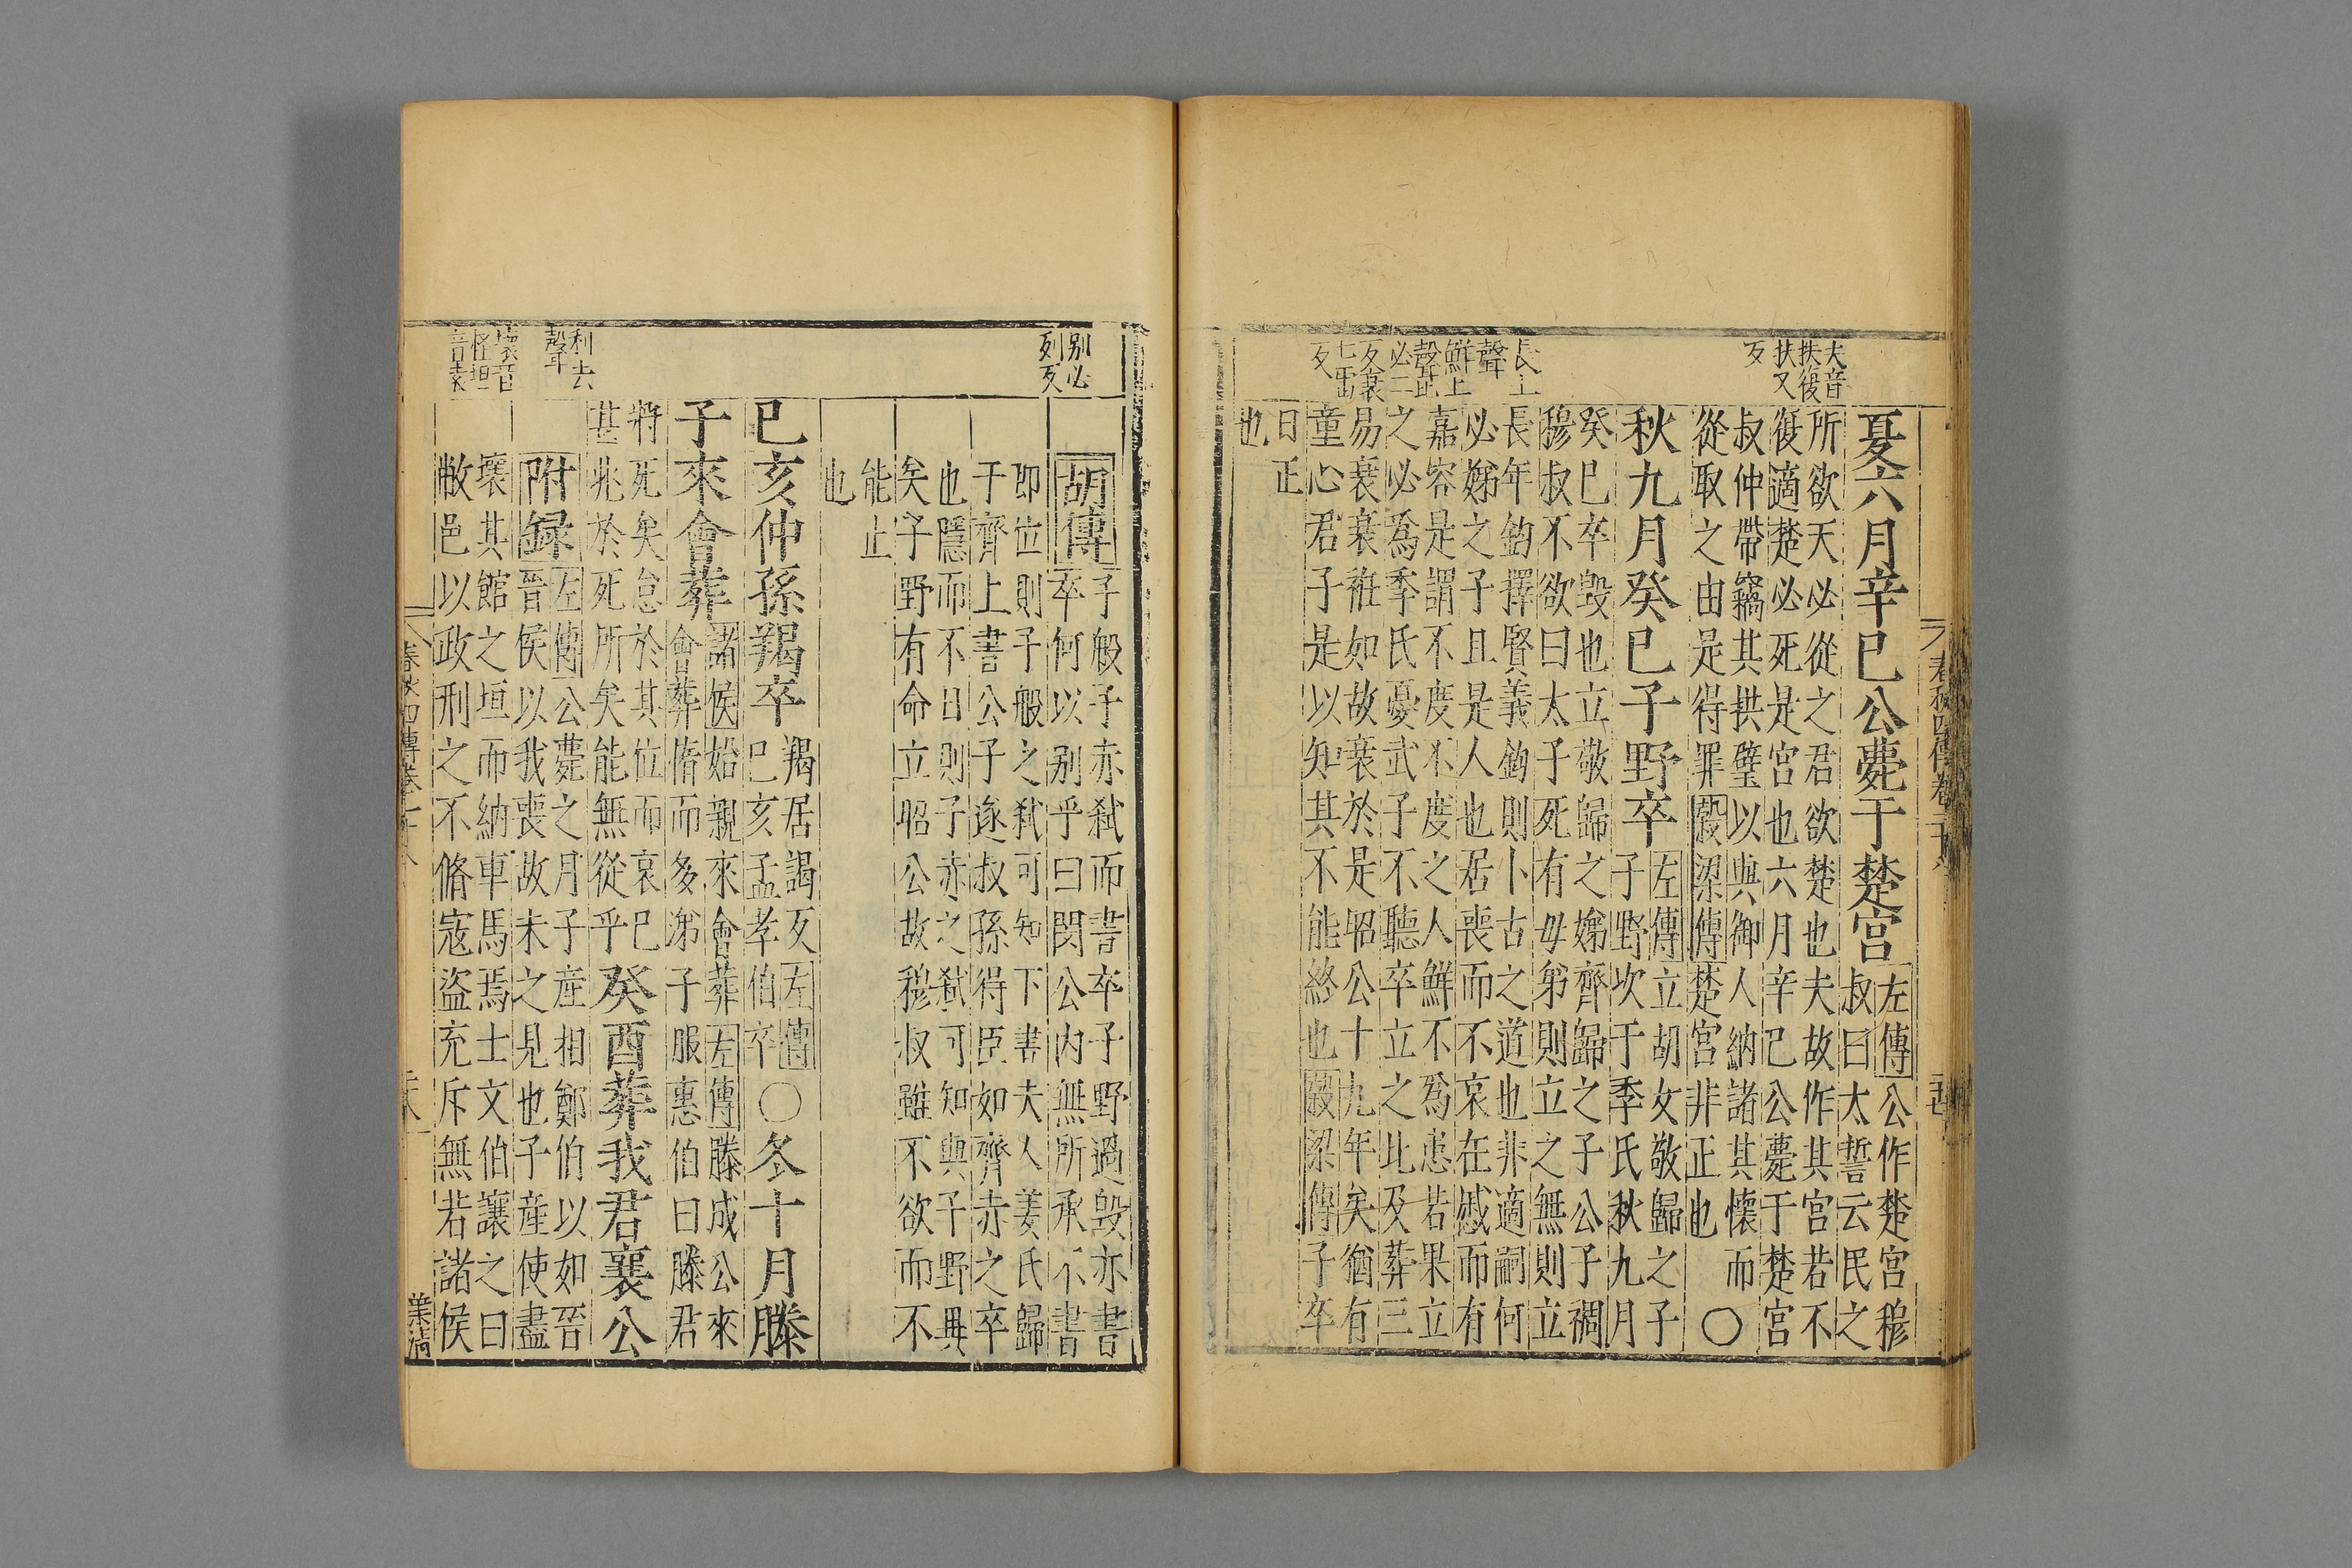 春秋四傳卷
夫音
扶復
扶又
反
長上
聲
鮮上
聲比
必二
反衰
七雷
反
夏六月辛巳公薨于楚宮
左傳公作楚宮穆
叔曰太誓云民之
所欲天必從之君欲楚也夫故作其宮若不
復適楚必死是宮也六月辛巳公薨于楚宮
叔仲帶竊其拱璧以與御人納諸其懷而
從取之由是得罪穀梁傳楚宮非正也
○
秋九月癸巳子野卒
左傳立胡女敬歸之子
子野次于季氏秋九月
癸巳卒毀也立敬歸之娣齊歸之子公子裯
穆叔不欲曰太子死有毋弟則立之無則立
長年鈞擇賢義鈞則卜古之道也非適嗣何
必娣之子且是人也居喪而不哀在慼而有
嘉容是謂不度不度之人鮮不爲患若果立
之必爲季氏憂武子不聽卒立之比及葬三
易衰衰衽如故衰於是昭公十九年矣猶有
童心君子是以知其不能終也穀梁傳子卒
日正
也
別必
列反
去
聲
壞音
怪垣
音袁
胡傳
子般子赤弒而書卒子野過毀亦書
卒何以別乎曰閔公內無所承不書
即位則子般之弒可知下書夫人姜氏歸
于齊上書公子遂叔孫得臣如齊赤之卒
也隱而不日則子赤之弒可知與子野異
矣子野有命立昭公故穆叔雖不欲而不
能止
也
已亥仲孫羯卒
羯居謁反左傳
已亥孟孝伯卒
○冬十月滕
子來會葬
諸侯始親來會葬左傳滕成公來
會葬惰而多涕子服惠伯曰滕君
將死矣怠於其位而哀已
甚兆於死所矣能無從乎
癸酉葬我君襄公
附録
左傳公薨之月子產相鄭伯以如晉
晉侯以我喪故未之見也子產使盡
壞其館之垣而納車馬焉士文伯讓之曰
敝邑以政刑之不脩寇盜充斥無若諸侯
春秋四傳卷